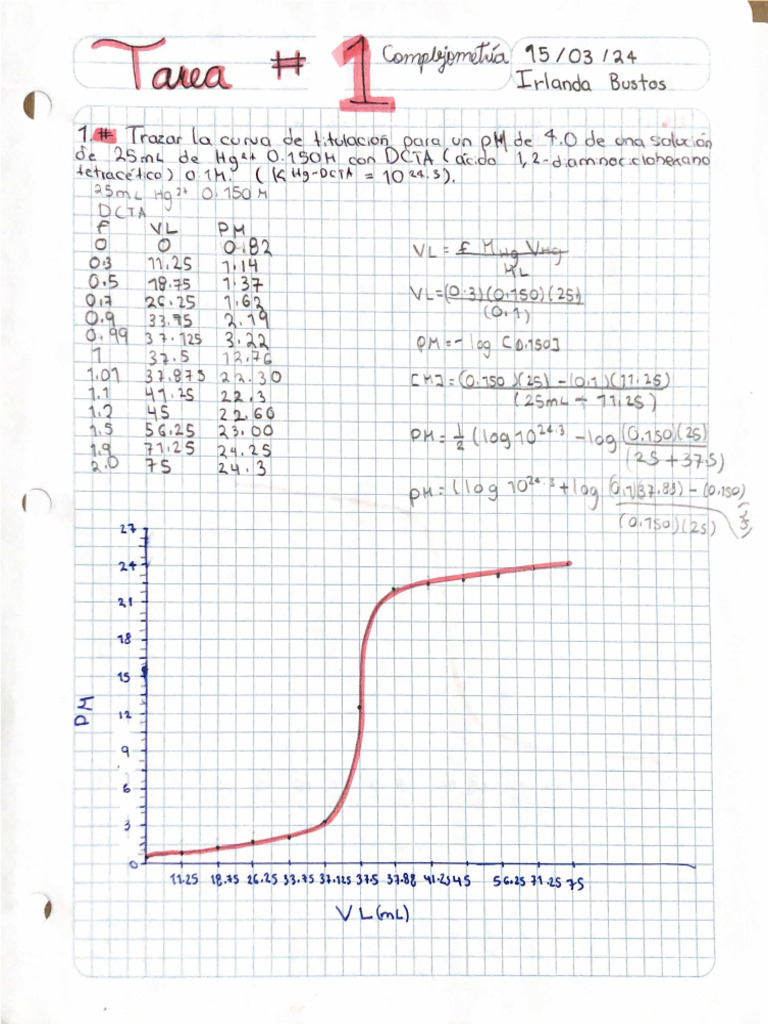 Tarea # 1
Complejometría
15/03/24
Irlanda Bustos
1.# Trazar la curva de titulación para un pM de 4.0 de una solución
de 25mL de Hg²⁺ 0.150M con DCTA (ácido 1,2-diaminociclohexano
tetracético) 0.1M. (K Hg-DCTA = 10^24.3).
25mL Hg²⁺ 0.150 M
DCTA
f VL PM
0 0 0.82
0.3 11.25 1.14
0.5 18.75 1.37
0.7 26.25 1.62
0.9 33.75 2.19
0.99 37.125 3.22
1 37.5 12.76
1.01 37.875 22.30
1.1 41.25 22.3
1.2 45 22.60
1.5 56.25 23.00
1.9 71.25 24.25
2.0 75 24.3
VL = f MHg VHg / ML
VL=(0.3)(0.150)(25) / (0.1)
PM=-log[0.150]
[M]=(0.150)(25)-(0.1)(11.25) / (25mL + 11.25)
PM=½(log10^24.3 - log (0.150)(25) / (25+37.5)
PM=(log10^24.3+log (0.1)(37.88)-(0.150) / (0.150)(25)
27
24
21
18
15
12
9
6
3
0
PM
11.25 18.75 26.25 33.75 37.125 37.5 37.88 41.25 45 56.25 71.25 75
VL(mL)